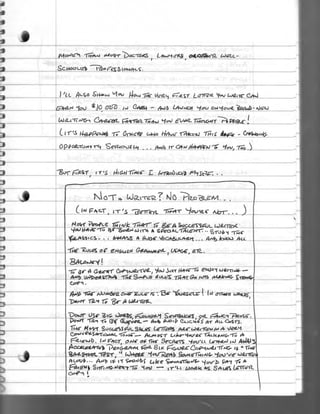 MONEY THAN MOST DOCTORS, LAWYERS, OTHER WELL-
SCHOOLED PROFESSIONALS.
I'LL ALSO SHOW YOU HOW THE VERY FIRST LETTER YOU WRITE CAN
EARN YOU $10,000 IN CASH - AND LAUNCH YOU ON YOUR NEW
WRITING CAREER FASTER THAN YOU EVER THOUGHT POSSIBLE!
(IT'S HAPPENED TO OTHERS WHO HAVE TAKEN THIS
OPPORTUNITY SERIOUSLY ... AND IT CAN HAPPEN TO YOU, TOO)
BUT FIRST, IT'S HIGH TIME I INTRODUCED MYSELF...
NOT A WRITER? NO PROBLEM...
(IN FACT, IT'S BETTER THAT YOU'RE NOT...)
MOST PEOPLE THINK THAT TO BE A SUCCESSFUL WRITER
YOU HAVE TO BE BORN WITH A SPECIAL TALENT - STUDY THE
CLASSICS ... AMASS A HUGE VOCABULARY ... AND KNOW ALL
THE RULES OF ENGLISH GRAMMAR, USAGE, ETC.
BALONEY!
TO BE A GREAT COPYWRITER, YOU JUST HAVE TO ENJOY WRITING -
AND UNDERSTAND THE SIMPLE RULES THAT GO INTO MAKING STRONG
COPY.
AND THE NUMBER ONE RULE IS: BE YOURSELF! IN OTHER WORDS,
DON'T TRY TO BE A WRITER.
DON'T USE BIG WORDS, SENTENCES, OR FANCY PROSE.
DON'T TRY TO BE AND AVOID CLICHES AT ALL COSTS.
THE MOST SUCCESSFUL SALES LETTERS ARE WRITTEN IN A VERY
CONVERSATIONAL TONE - ALMOST LIKE YOU'RE TALKING TO A
FRIEND. IN FACT, ONE OF THE SECRETS YOU'LL LEARN IN AWAI'S
ACCELERATED PROGRAM FOR SIX-FIGURE COPYWRITING IS "THE
BARSTOOL TEST," WHERE YOU READ SOMETHING YOU'VE WRITTEN
ALOUD... AND IF IT SOUNDS LIKE SOMETHING YOU'D SAY TO A
FRIEND SITTING NEXT TO YOU - IT'LL WORK AS SALES LETTER
COPY!